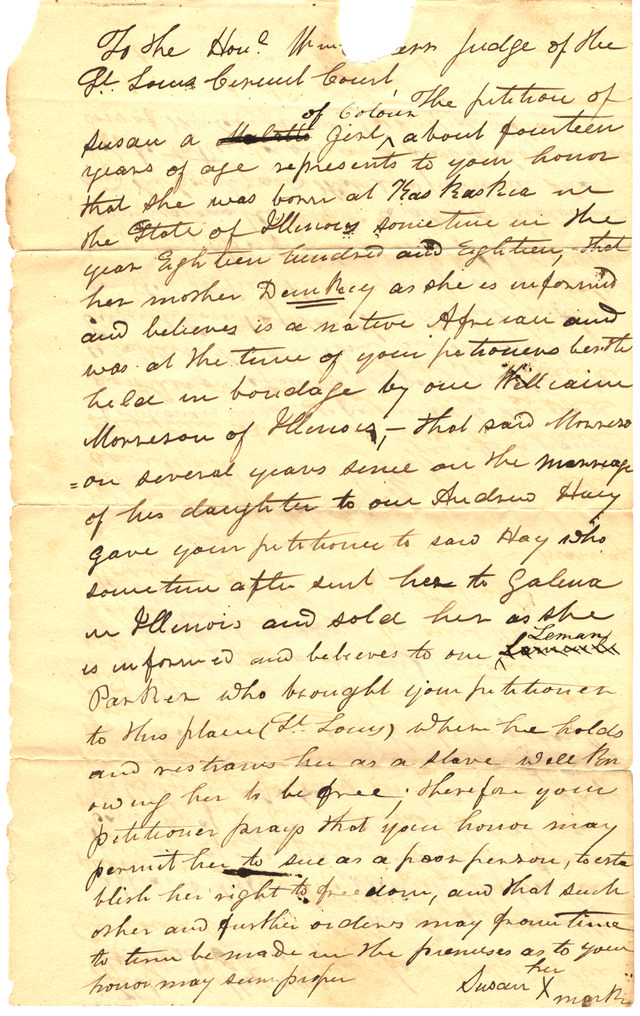 To the Hon.l Wm. Carr Judge of the
St. Louis Circuit Court
of Colour The petition of
Susan a Mulatto Girl ^ about fourteen
years of age represents to your honor
that she was born at Kaskaskia in
the State of Illinois sometime in the
year Eighteen hundred and Eighteen, that
her mother Dunkey as she is informed
and believes is a native African and
was at the time of your petitioners birth
held in bondage by one William
Morrison of Illinois, – that said Morriso
=on several years since on the marriage
of his daughter to one Andrew Hay
gave your petitioner to said Hay who
sometime after sent her to Galena
in Illinois and sold her as she
is informed and believes to one Leman
Parker who brought your petitioner
to this place (St. Louis) where he holds
and restrains her as a slave well kn
owing her to be free; therefore your
petitioner prays that your honor may
permit her to sue as a poor person, to esta
blish her right to freedom, and that such
other and further orders may from time
to time be made in the premises as to your
honor may seem proper
Susan her X mark